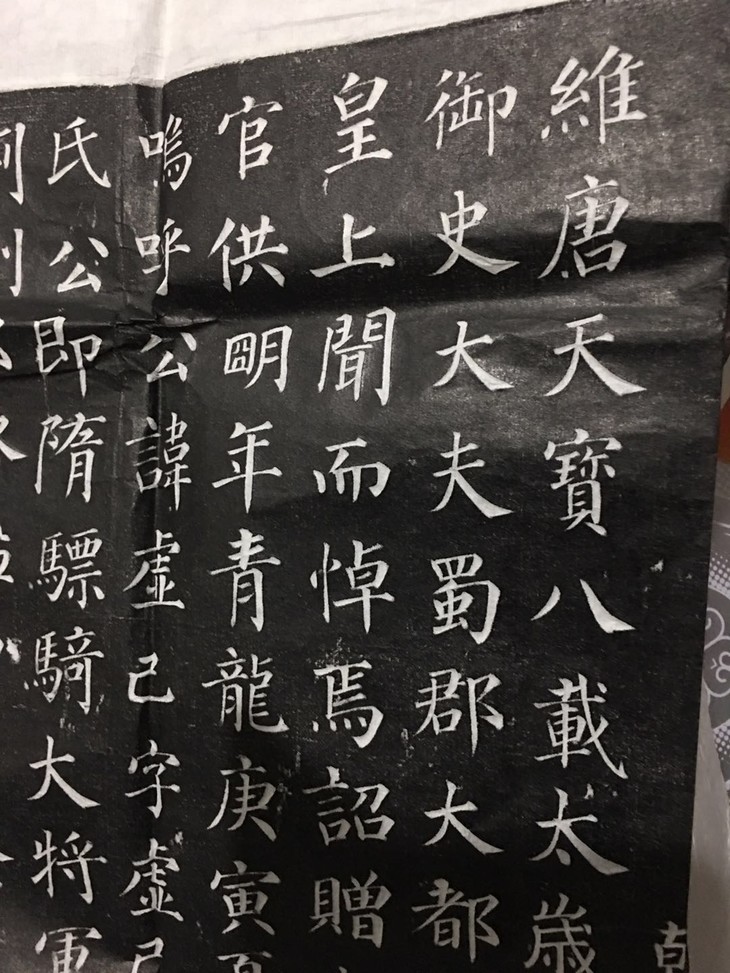 維唐天寶八載太歲
御史大夫蜀郡大都
皇上聞而悼焉詔贈
官供明年青龍庚寅夏
嗚呼公諱虛己字虛己
氏公即隋驃騎大將軍